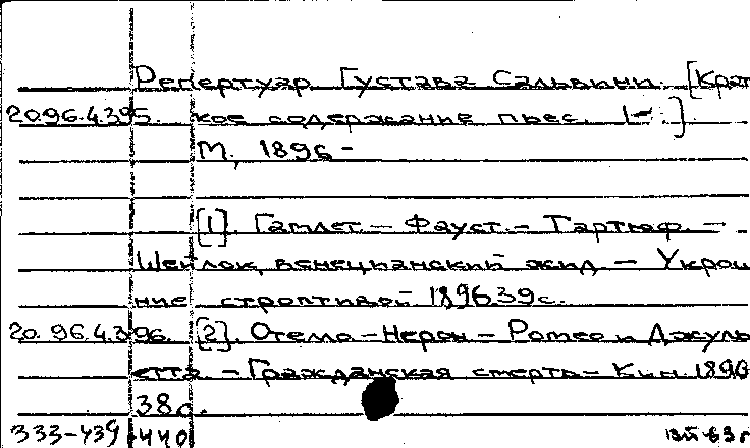 Репертуар Густава Сальвини. [Крат
20.96.4.395. кое содержание пьес. 1- ]
М., 1896 -
[1]. Гамлет - Фауст. - Тартюф. -
Шейлок, венецианский жид - Укрощ
ние строптивой 1896 39 с.
20.96.4.396. [2]. Отелло - Нерон - Ромео и Джуль
етта - Гражданская смерть - Кин. 1896
38 с.
333-439 440